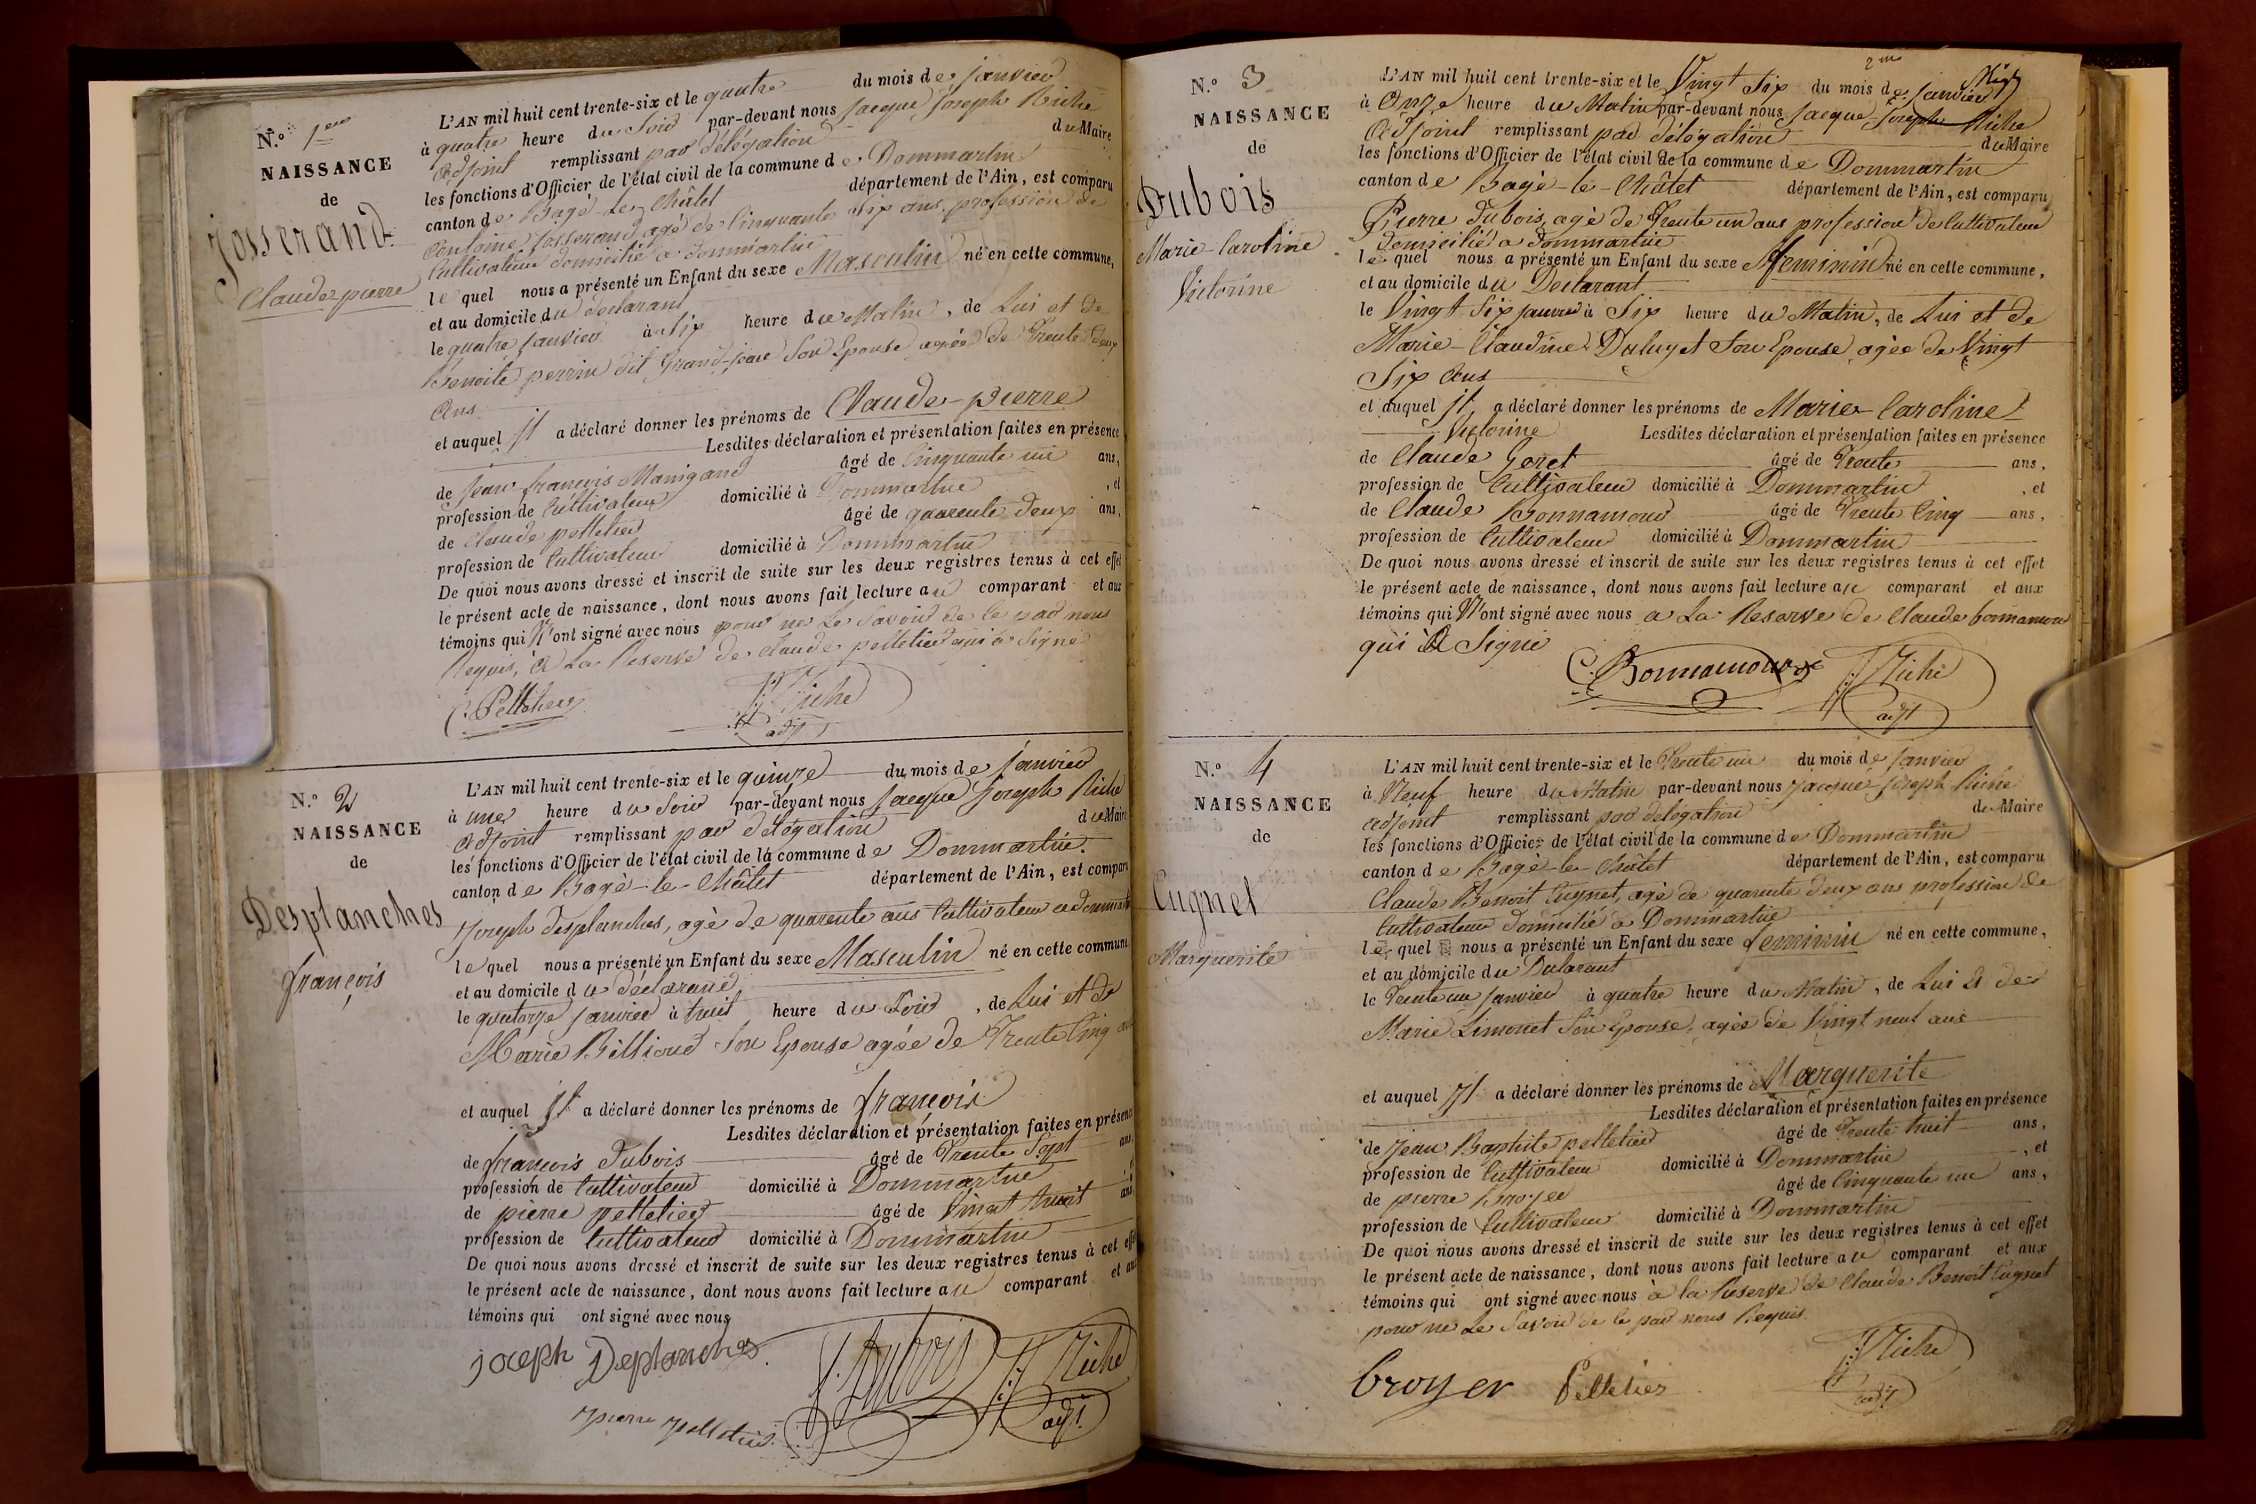 N.º 1er
NAISSANCE
de
Josserand
Claude-pierre
L'AN mil huit cent trente-six et le quatre du mois de janvier
à quatre heure du Soir par-devant nous jacque joseph Riche
adjoint remplissant par délégation du Maire
les fonctions d'Officier de l'état civil de la commune de Dommartin
canton de Bagé-le-Châtel département de l'Ain, est comparu
antoine josserand agé de Cinquante Six ans, profession de
Cultivateur domicilié a dommartin
lequel nous a présenté un Enfant du sexe Masculin né en cette commune,
et au domicile du déclarant
le quatre janvier à Six heure du Matin, de Lui et de
Benoite perrin dit Grand-jean Son Epouse agée de Trente deux
Ans
et auquel Il a déclaré donner les prénoms de Claude-pierre
Lesdites déclaration et présentation faites en présence
de jean françois Manigand âgé de Cinquante un ans,
profession de Cultivateur domicilié à Dommartin, et
de Claude pelletier âgé de quarente deux ans,
profession de Cultivateur domicilié à Dommartin
De quoi nous avons dressé et inscrit de suite sur les deux registres tenus à cet effet
le présent acte de naissance, dont nous avons fait lecture au comparant et aux
témoins qui N'ont signé avec nous pour ne Le Savoir de ce par nous
Requis, a La Reserve de Claude pelletier qui a Signé
C. Pelletier JJ Riche
adjt
N.º 2
NAISSANCE
de
Desplanches
françois
L'AN mil huit cent trente-six et le quinze du mois de janvier
à une heure du Soir par-devant nous jacque joseph Riche
adjoint remplissant par délégation du Maire
les fonctions d'Officier de l'état civil de la commune de Dommartin
canton de Bagé-le-Châtel département de l'Ain, est comparu
joseph desplanches, agé de quarente ans Cultivateur a dommartin
lequel nous a présenté un Enfant du sexe Masculin né en cette commune
et au domicile du déclarant
le quatorze janvier à huit heure du Soir, de Lui et de
Marie Billioud Son Epouse agée de Trente Cinq ans
et auquel Il a déclaré donner les prénoms de françois
Lesdites déclaration et présentation faites en présence
de françois Dubois âgé de Trente Sept ans,
profession de Cultivateur domicilié à Dommartin
de pierre pelletier âgé de Vingt huit ans
profession de Cultivateur domicilié à Dommartin
De quoi nous avons dressé et inscrit de suite sur les deux registres tenus à cet effet
le présent acte de naissance, dont nous avons fait lecture au comparant et aux
témoins qui ont signé avec nous
joseph Deplanches f. Dubois JJ Riche
pierre pelletier adjt
N.º 3
NAISSANCE
de
Dubois
Marie-Caroline
Victorine
L'AN mil huit cent trente-six et le Vingt Six du mois de janvier
à Onze heure du Matin par-devant nous jacque joseph Riche
Adjoint remplissant par délégation du Maire
les fonctions d'Officier de l'état civil de la commune de Dommartin
canton de Bagé-le-Châtel département de l'Ain, est comparu
Pierre dubois, agé de Trente un ans profession de Cultivateur
domicilié a dommartin
lequel nous a présenté un Enfant du sexe feminin né en cette commune,
et au domicile du Declarant
le Vingt Six janvier à Six heure du Matin, de Lui et de
Marie-Claudine Duluyet Son Epouse agée de Vingt
Six Ans
et auquel Il a déclaré donner les prénoms de Marie-Caroline
Victorine Lesdites déclaration et présentation faites en présence
de Claude Goret âgé de Trente ans,
profession de Cultivateur domicilié à Dommartin, et
de Claude Bonnamour âgé de Trente Cinq ans,
profession de Cultivateur domicilié à Dommartin
De quoi nous avons dressé et inscrit de suite sur les deux registres tenus à cet effet
le présent acte de naissance, dont nous avons fait lecture au comparant et aux
témoins qui N'ont signé avec nous a La Reserve de Claude bonnamour
qui a Signé
C. Bonnamour JJ Riche
adjt
N.º 4
NAISSANCE
de
Cugnet
Marguerite
L'AN mil huit cent trente-six et le Trente un du mois de janvier
à Neuf heure du Matin par-devant nous jacque joseph Riche
adjoint remplissant par délégation du Maire
les fonctions d'Officier de l'état civil de la commune de Dommartin
canton de Bagé-le-Châtel département de l'Ain, est comparu
Claude Benoit Cugnet, agé de quarente deux ans profession de
Cultivateur domicilié a Dommartin
lequel nous a présenté un Enfant du sexe feminin né en cette commune,
et au domicile du Declarant
le Trente un janvier à quatre heure du Matin, de Lui et de
Marie Limonet Son Epouse, agée de Vingt neuf ans
et auquel Il a déclaré donner les prénoms de Marguerite
Lesdites déclaration et présentation faites en présence
de Jean Baptiste pelletier âgé de Trente huit ans,
profession de Cultivateur domicilié à Dommartin, et
de pierre broyer âgé de Cinquante un ans,
profession de Cultivateur domicilié à Dommartin
De quoi nous avons dressé et inscrit de suite sur les deux registres tenus à cet effet
le présent acte de naissance, dont nous avons fait lecture au comparant et aux
témoins qui ont signé avec nous à la Reserve de Claude Benoit Cugnet
pour ne Le Savoir de ce par nous Requis
broyer Pelletier JJ Riche
adjt